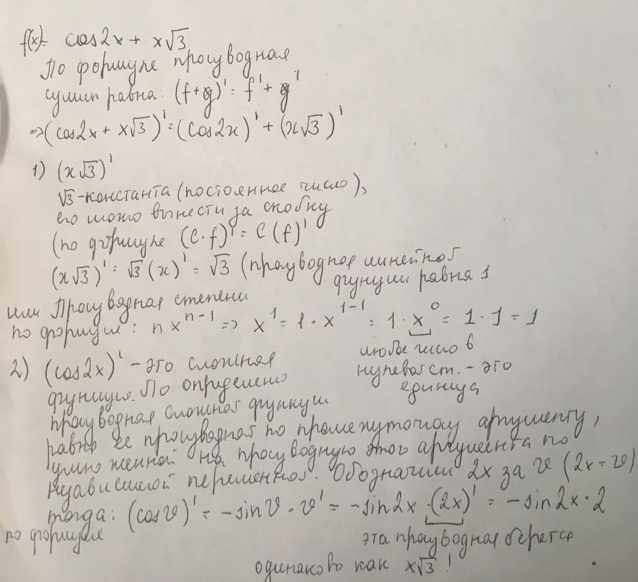 f(x)= cos2x + x√3
По формуле производная
суммы равна: (f+g)' = f' + g'
⇒ (cos2x + x√3)' = (cos2x)' + (x√3)'
1) (x√3)'
√3 - константа (постоянное число),
его можно вынести за скобку
(по формуле (C·f)' = C(f)'
(x√3)' = √3(x)' = √3 (производная линейной
функции равна 1
или Производная степени
по формуле: nxⁿ⁻¹ ⇒ x¹ = 1·x¹⁻¹ = 1·x⁰ = 1·1 = 1
любое число в
нулевой ст. - это
единица
2) (cos2x)' - это сложная
функция. По определено
производная сложной функции
равна её производной по промежуточному аргументу,
умноженной на производную этого аргумента по
независимой переменной. Обозначим 2x за v (2x = v)
тогда: (cosv)' = -sinv · v' = -sin2x · (2x)' = -sin2x · 2
по формуле
эта производная берется
одинаково как x√3 !